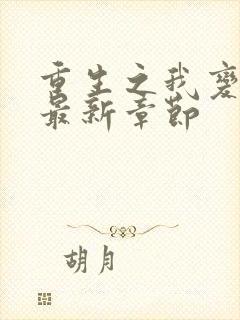 重生之我变
最新章节
胡月